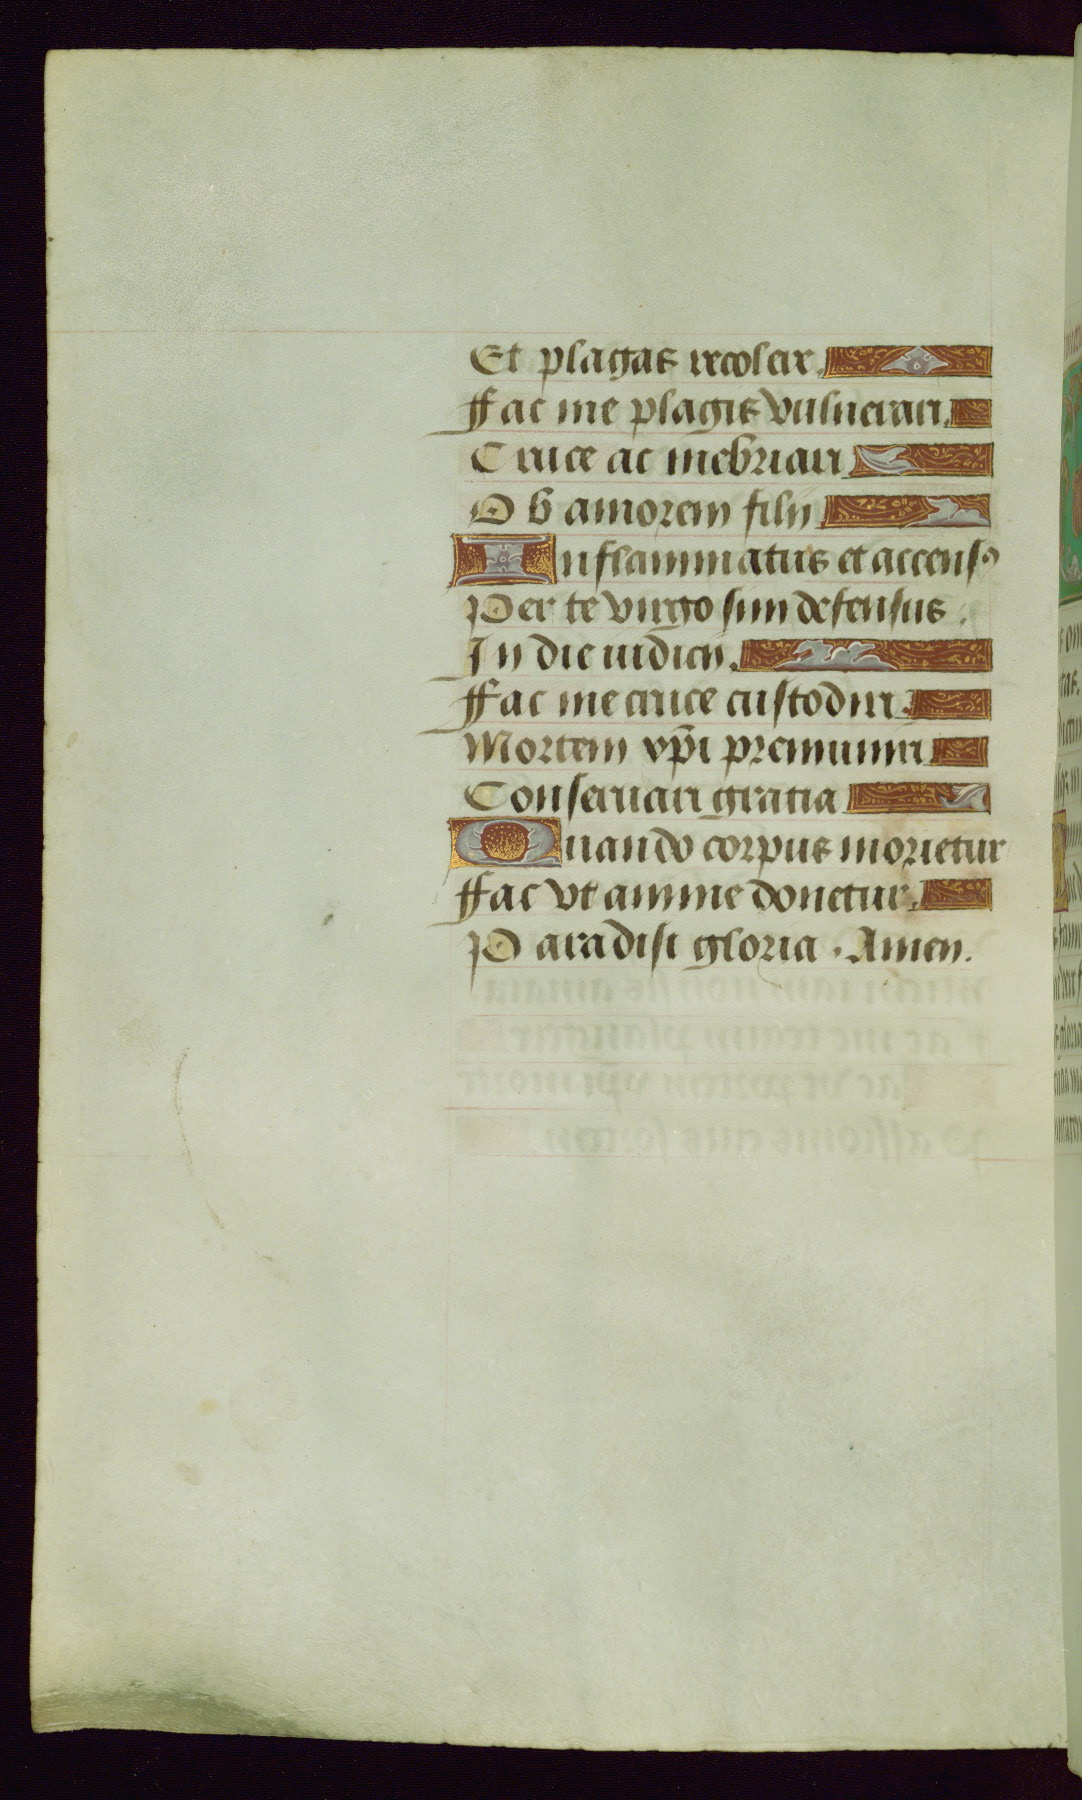 Et plagas recolere.
ffac me plagis vulnerari.
Cruce ac inebriari
Ob amorem filii
Inflammatus et accensꝰ
Per te virgo sim defensus.
In die iudicij.
ffac me cruce custodiri.
Mortem xp̄i premuniri
Conseruari gratia
Quando corpus morietur
ffac vt anime donetur.
Paradisi gloria. Amen.